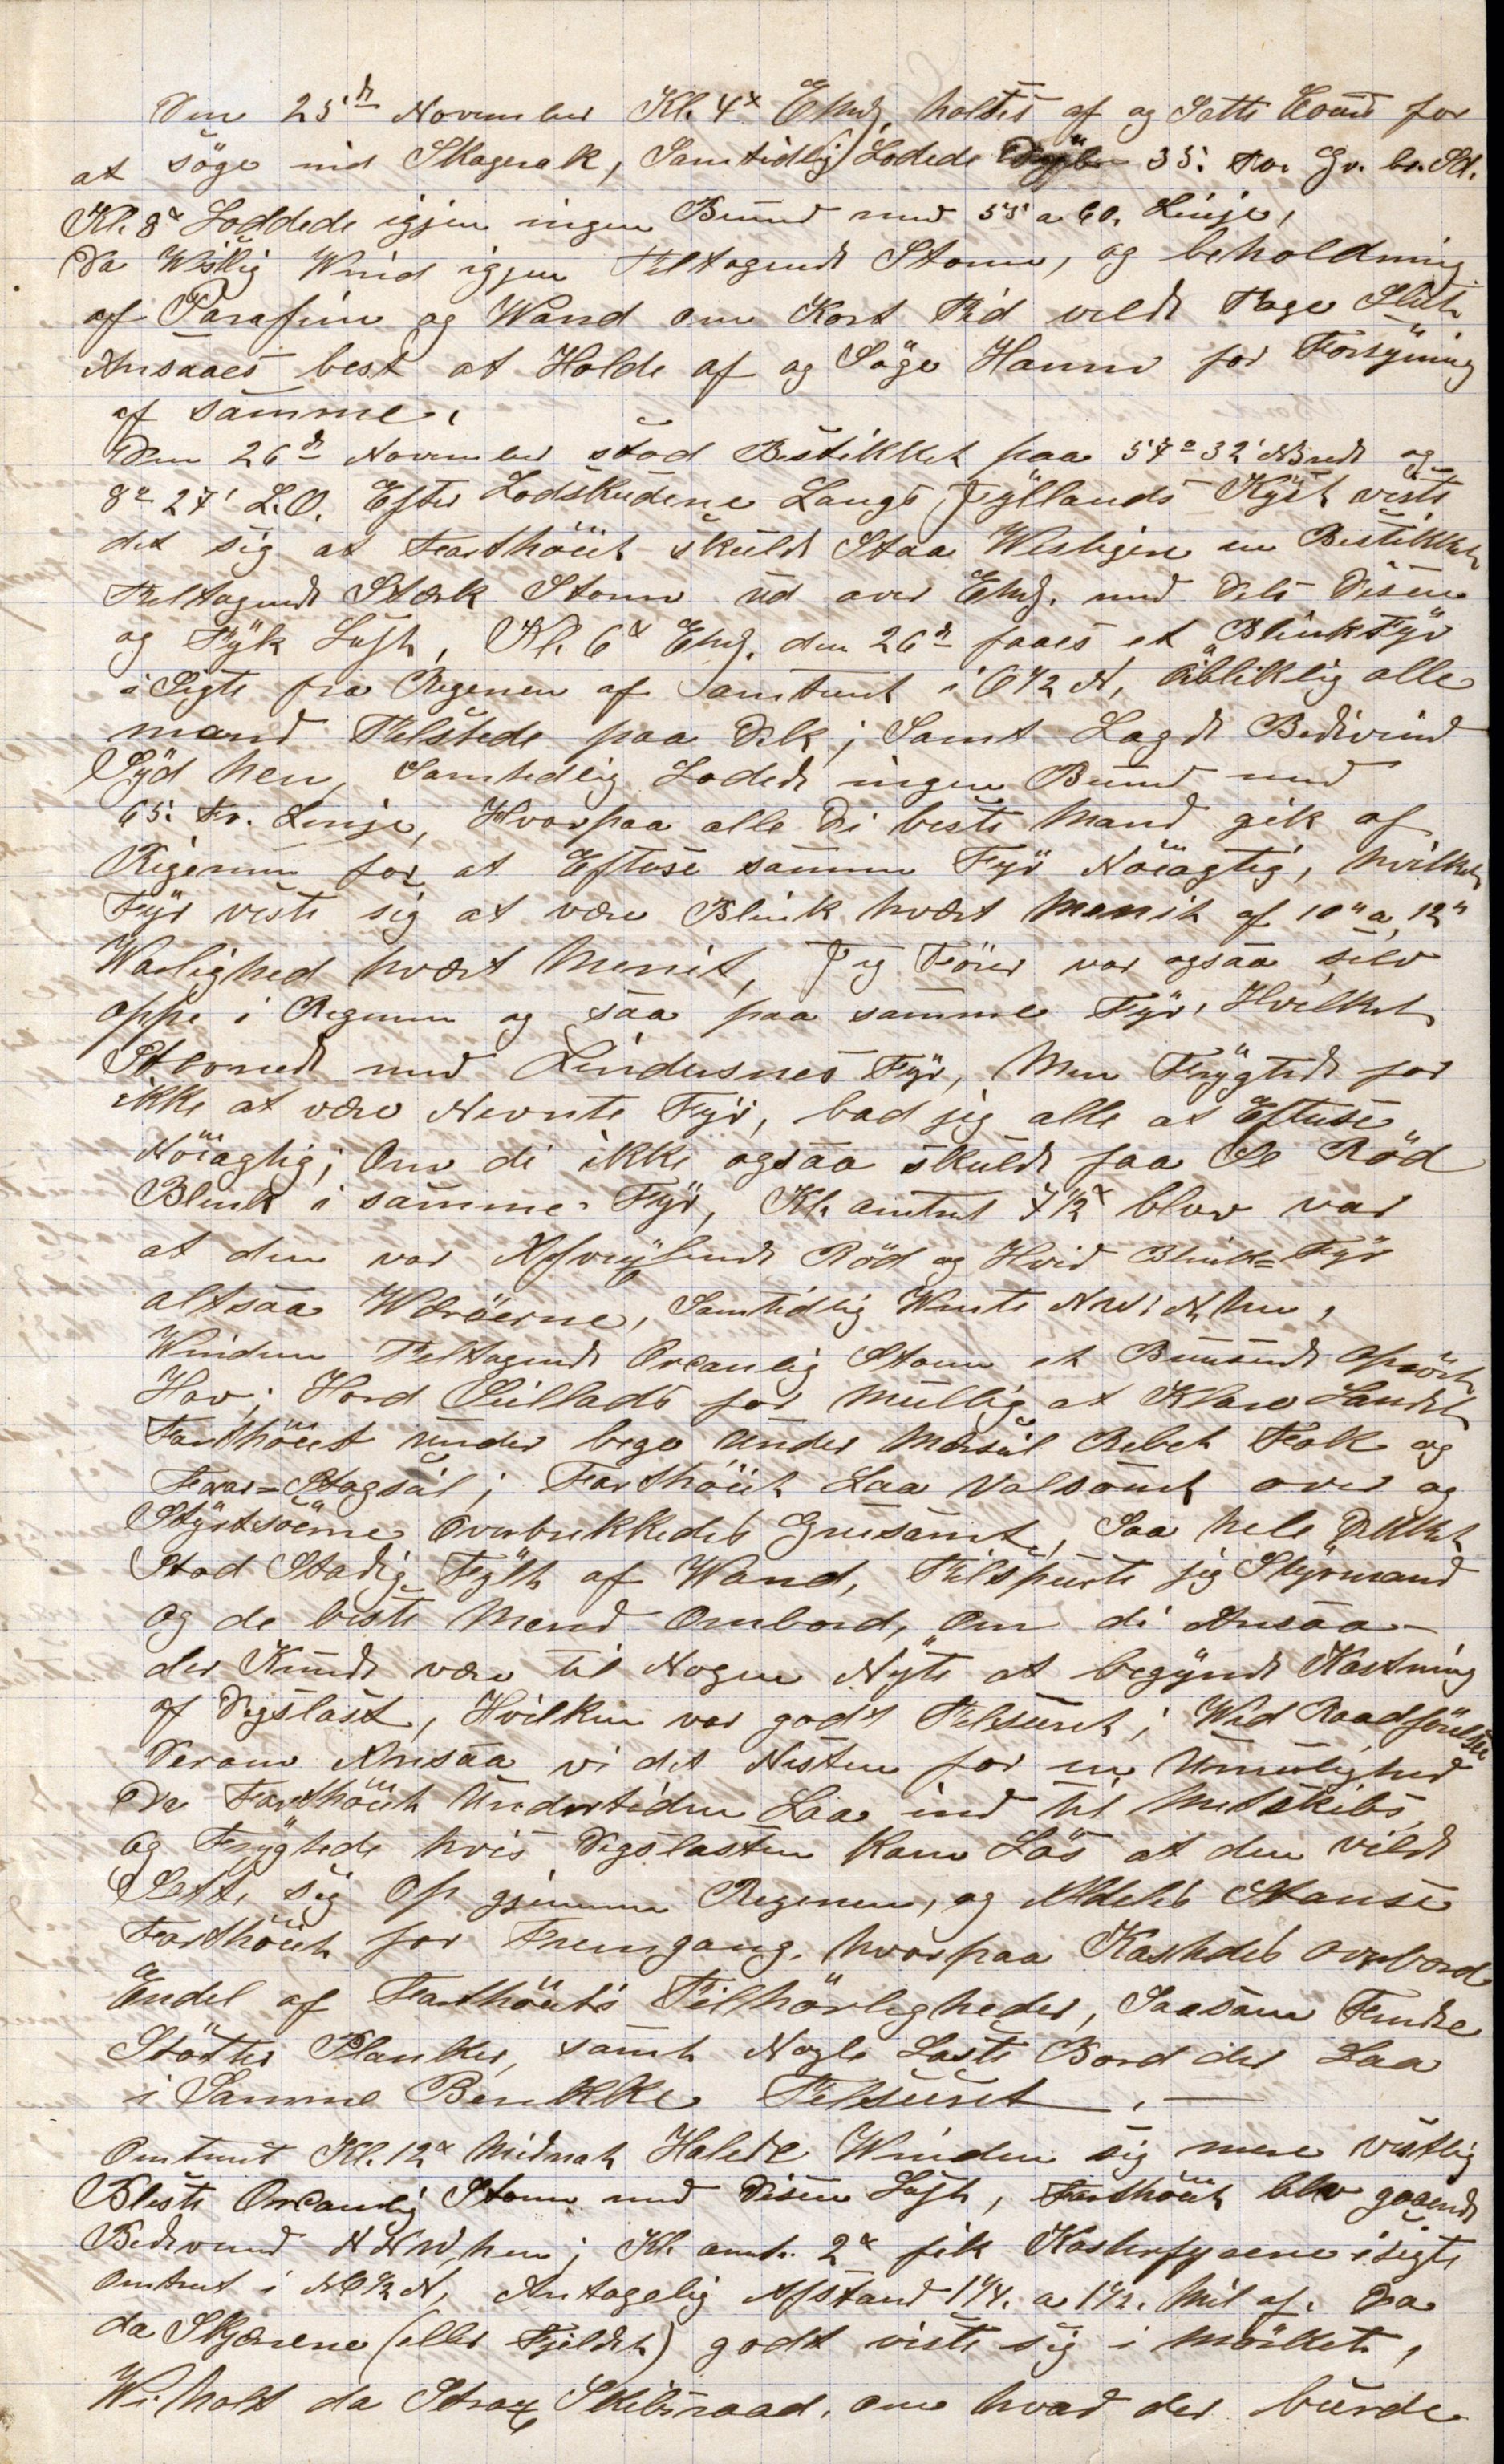 Den 25de November Kl. 4x Emd. holdtes af og Satte Cours for
at söge ind Skagerak, Samtidlig Lodede 35. Fv. Gr. br. Sd.
Kl. 8x Loddede igjen ingen Bund med 55 a 60. Linje,
Da Westlig Wind igjen Teltagende Storm, og beholdning
af Parafin og Wand om Kort Tid vilde Tage Slut.
Ansaaes best at Holde af og Söge Havn for Forsyning
af samme.
Den 26de November stod Bestikket paa 57° 32' NBrede og
8° 27' L.O. Efter Lodskudene Langs Jyllands Kyst viste
det sig at Farthöiet skulde Staa Westligere en Bestikket
Teltagende Stærk Storm ud over Emd. med Dels Disen
og Tyk Luft, Kl. 6x Emd. den 26de saaes et Blinkfyr
i Sigte fra Regenen af omtrent i O1/2 N, öibliklig alle
mand Telstede paa Dek; Samt Lagde Bidevind
Syd hen, Samtedlig Lodede ingen Bund med
65. Fv. Linje, Hvorpaa alle Di beste Mand gik af
Rigenen for at Eftese samme Fyr Nöiagtig, hvilket
Fyr viste sig at være Blink hvært Menit af 10" a 12"
Warlighed hvært Menit, Jeg Förer var ogsaa selv
oppe i Regenen og saa paa samme Fyr, Hvilket
Stemede med Lindesnes Fyr, Men Frygtede for
ikke at være Nevnte Fyr, bad jeg alle at Eftese
Nöiagtig; Om di ikke ogsaa skulde faa Se Röd
Blink i samme Fyr, Kl. omtret 7 1/2x blev var
at den var Afvexlende Röd og Hvid Blink= Fyr
altsaa Wæröerne, Samtidlig Wente NW i N hen,
Winden Teltagende Orcanlig Storm et Brusende oprört
Hav; Hord Seillads for Mullig at Klare Landet
Farthöiet under bege Under Mersseil Rebet Fok og
Forre=Stagseil; Farthöiet Laa Volsomt over og
Styrtsöerne Overbrekkedes Grusomt, Saa hele Dekket
Stod Stadig Fyllt af Wand, Tilspurte jeg Styrmand
og de beste Mend Ombord, Om di Ansaa
der Kunde være til Nogen Nytte at begynde Kastning
af Dekslast, Hvilken var godt Telsuret; Wed Raadförelse
Derom Ansaa vi det Nesten for en Umulighed
Da Farthöiet Undertiden Laa ind til Mitskibs,
og Frygtede hvis Dekslasten Kom Lös at den vilde
Sette sig Op gjennem Regenen, og Aldeles Stanse
Farthöiet for Fremgang. hvorpaa Kastedes overbord
Endel af Farthöiets Tilhörligheder, Saasom Fendre
Stötter Planker, samt Nogle Laste Bord der Laa
i Samme Benkke Telsuret.
Omtrent Kl. 12x Midnat Halede Winden sig mere västlig
Bleste Orcanlig Storm med Disen Luft, Farthöiet blev gaaende
Bidevind NNW hen; Kl. omt. 2x fik Kosterfyrene i sigte
Omtrent i NO1/2 N, Antagelig Afstand 1 1/4. a 1 1/2. Mil af. Da
da Skjærene (eller Fjeldet) godt viste sig i Mörket,
Wi holt da Strax Skibsraad, om hvad der burde